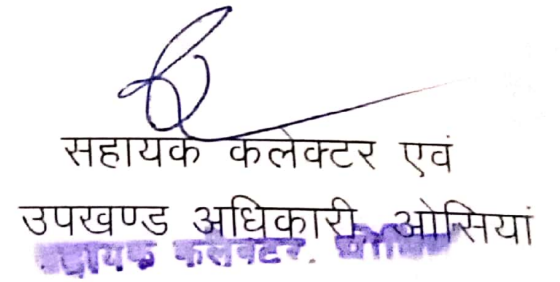 सहायक कलेक्टर एवं
उपखण्ड अधिकारी ओसियां
सहायक कलेक्टर. ओसियां